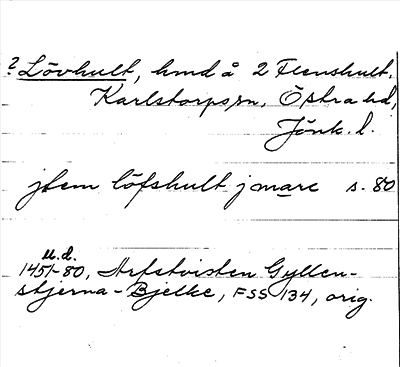 ? Lövhult, hmd å 2 Flenshult,
Karlstorps sn, Östra hd,
Jönk. l.
jtem löfshult j mare s. 80
u.d.
1451-80, Arfstvisten Gyllen-
stjerna - Bjelke, FSS 134, orig.